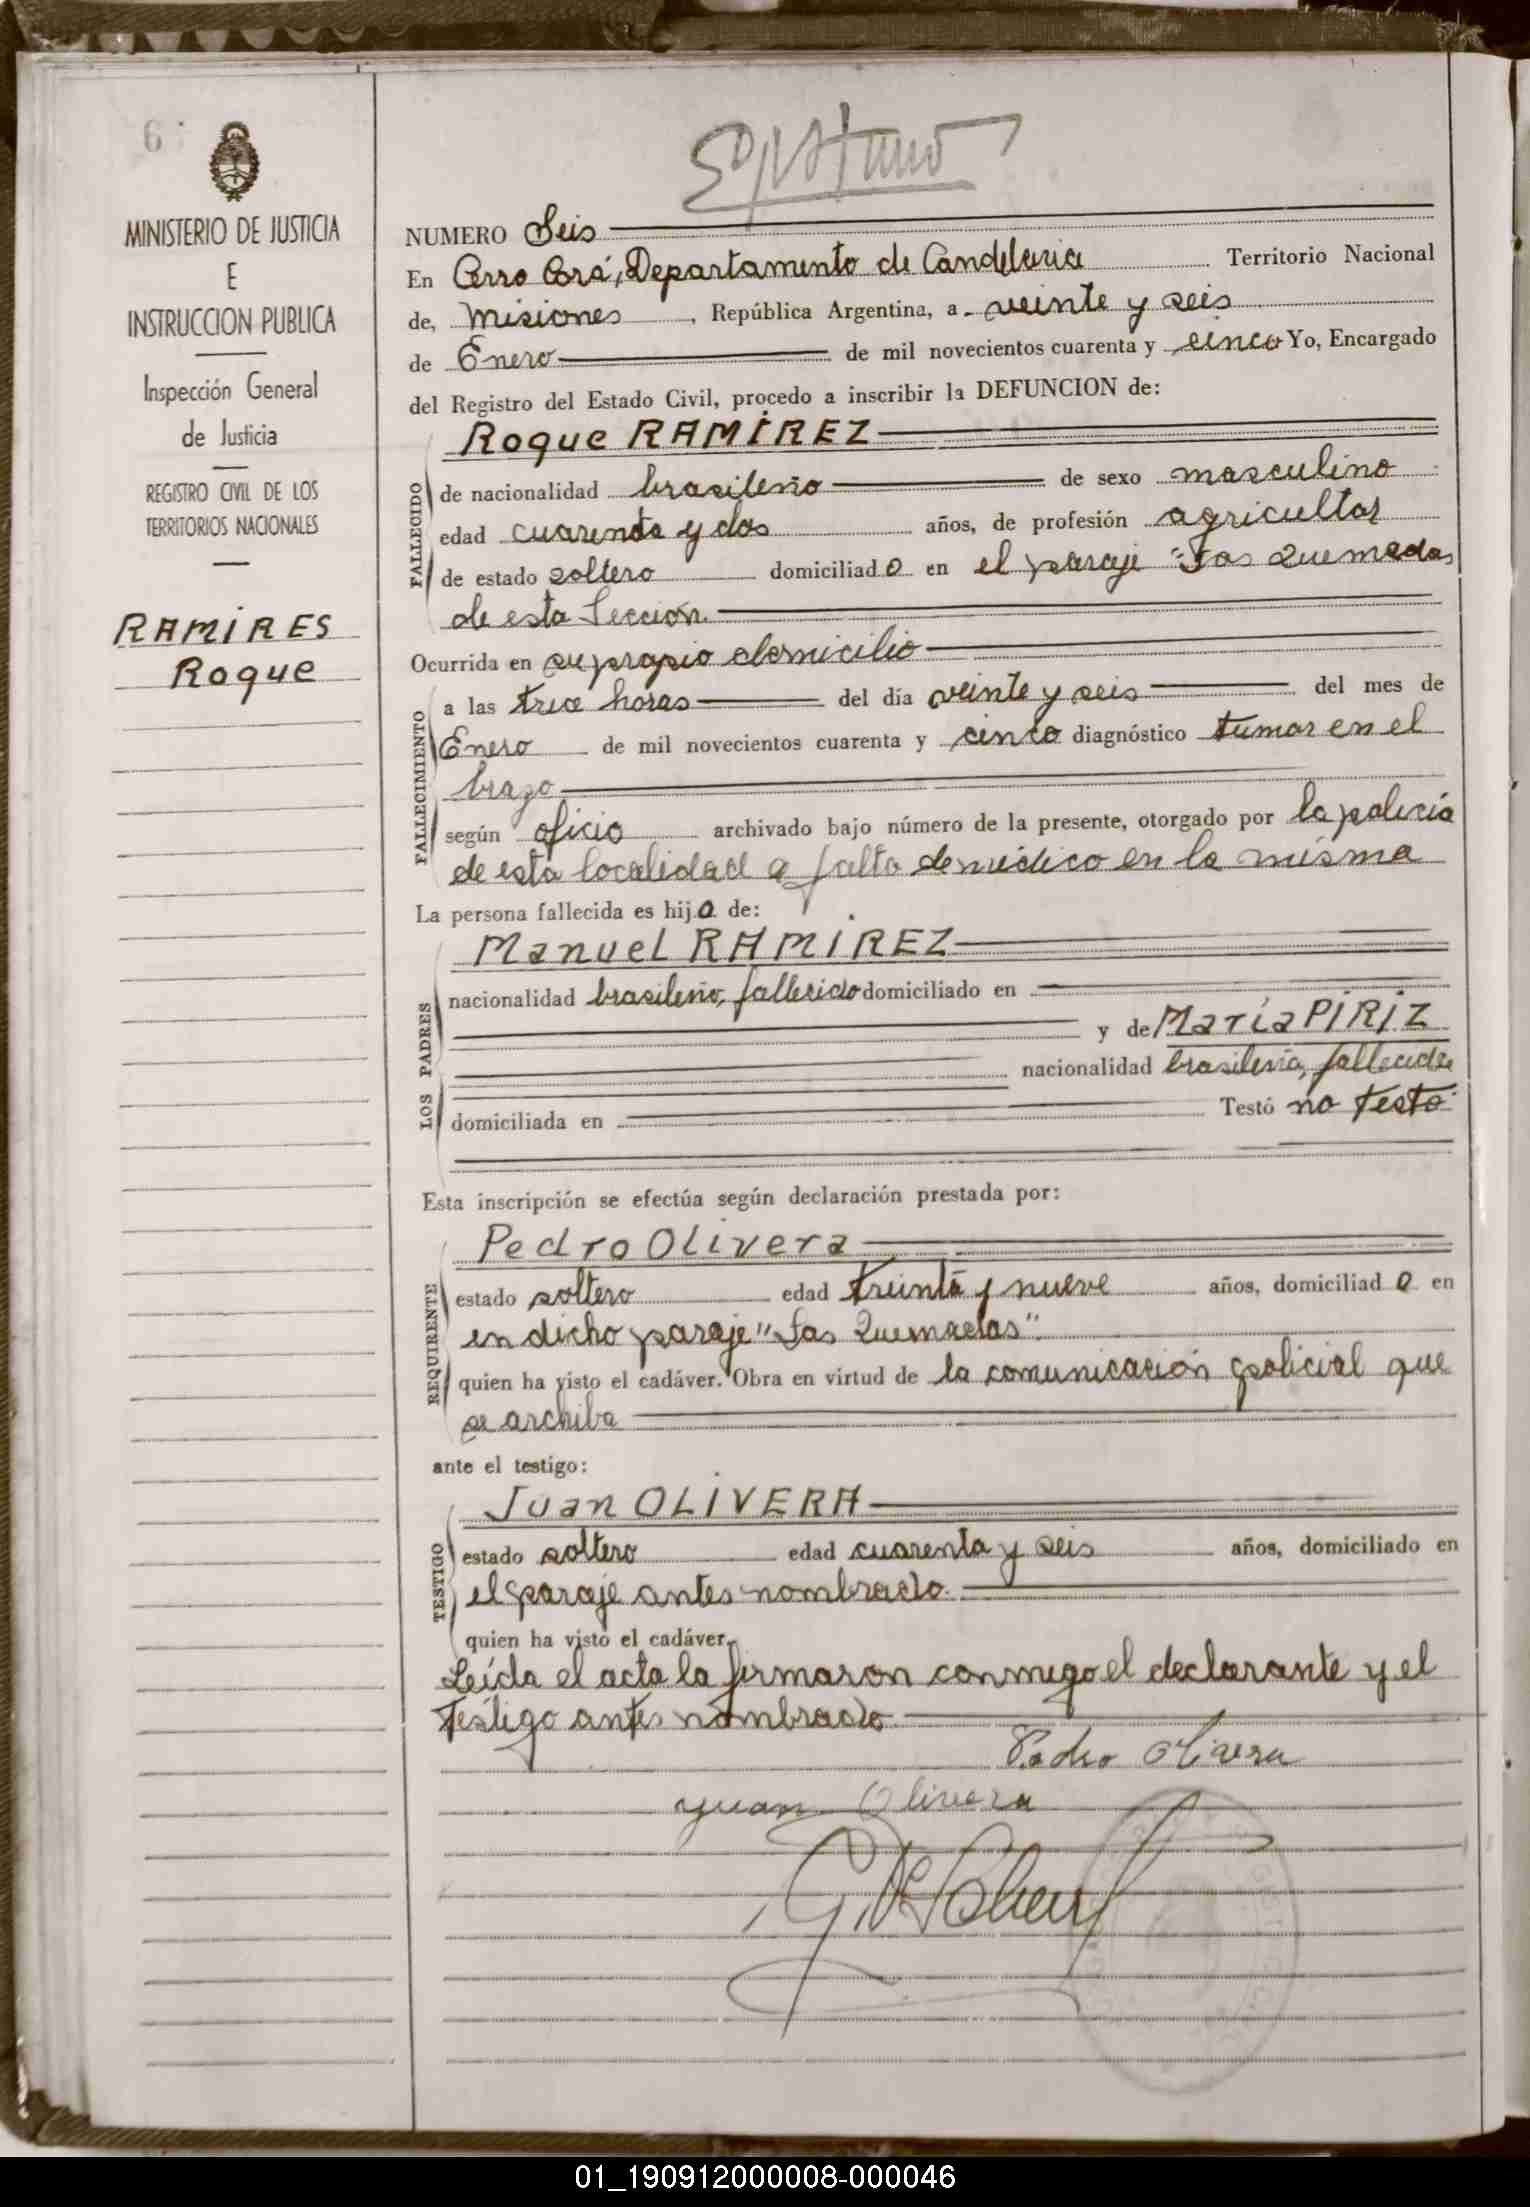 6
MINISTERIO DE JUSTICIA
E
INSTRUCCION PUBLICA
Inspección General
de Justicia
REGISTRO CIVIL DE LOS
TERRITORIOS NACIONALES
RAMIRES
Roque
NUMERO Seis
En Cerro Corá, Departamento de Candelaria Territorio Nacional
de, Misiones, República Argentina, a veinte y seis
de Enero de mil novecientos cuarenta y cinco Yo, Encargado
del Registro del Estado Civil, procedo a inscribir la DEFUNCION de:
Roque RAMIREZ
FALLECIDO
de nacionalidad brasileño de sexo masculino
edad cuarenta y dos años, de profesión agricultor
de estado soltero domiciliado en el paraje "Las Quemadas
de esta Sección.
Ocurrida en su propio domicilio
FALLECIMIENTO
a las trece horas del día veinte y seis del mes de
Enero de mil novecientos cuarenta y cinco diagnóstico tumor en el
brazo
según oficio archivado bajo número de la presente, otorgado por la policía
de esta localidad a falta de médico en la misma
La persona fallecida es hijo de:
Manuel RAMIREZ
LOS PADRES
nacionalidad brasileño, fallecido domiciliado en
y de María PIRIZ
nacionalidad brasileña, fallecida
domiciliada en Testó no testó
Esta inscripción se efectúa según declaración prestada por:
Pedro Olivera
REQUIRENTE
estado soltero edad treinta y nueve años, domiciliado en
en dicho paraje "Las Quemadas".
quien ha visto el cadáver. Obra en virtud de la comunicación policial que
se archiba
ante el testigo:
Juan OLIVERA
TESTIGO
estado soltero edad cuarenta y seis años, domiciliado en
el paraje antes nombrado.
quien ha visto el cadáver.
Leída el acta la firmaron conmigo el declarante y el
testigo antes nombrado.
Pedro Olivera
Juan Olivera
01_190912000008-000046